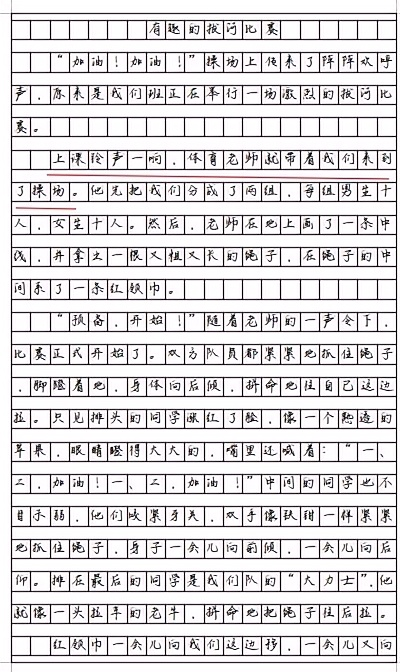 有趣的拔河比赛
“加油！加油！”操场上传来了阵阵欢呼
声，原来是我们班正在举行一场激烈的拔河比
赛。
上课铃声一响，体育老师就带着我们来到
了操场。他先把我们分成了两组，每组男生十
人，女生十人。然后，老师在地上画了一条中
线，并拿出一根又粗又长的绳子，在绳子的中
间系了一条红领巾。
“预备，开始！”随着老师的一声令下，
比赛正式开始了。双方队员都紧紧地抓住绳子
，脚蹬着地，身体向后倾，拼命地往自己这边
拉。只见排头的同学涨红了脸，像一个熟透的
苹果，眼睛瞪得大大的，嘴里还喊着：“一、
二，加油！一、二，加油！”中间的同学也不
甘示弱，他们咬紧牙关，双手像铁钳一样紧紧
地抓住绳子，身子一会儿向前倾，一会儿向后
仰。排在最后的同学是我们队的“大力士”，他
就像一头拉车的老牛，拼命地把绳子往后拉。
红领巾一会儿向我们这边移，一会儿又向